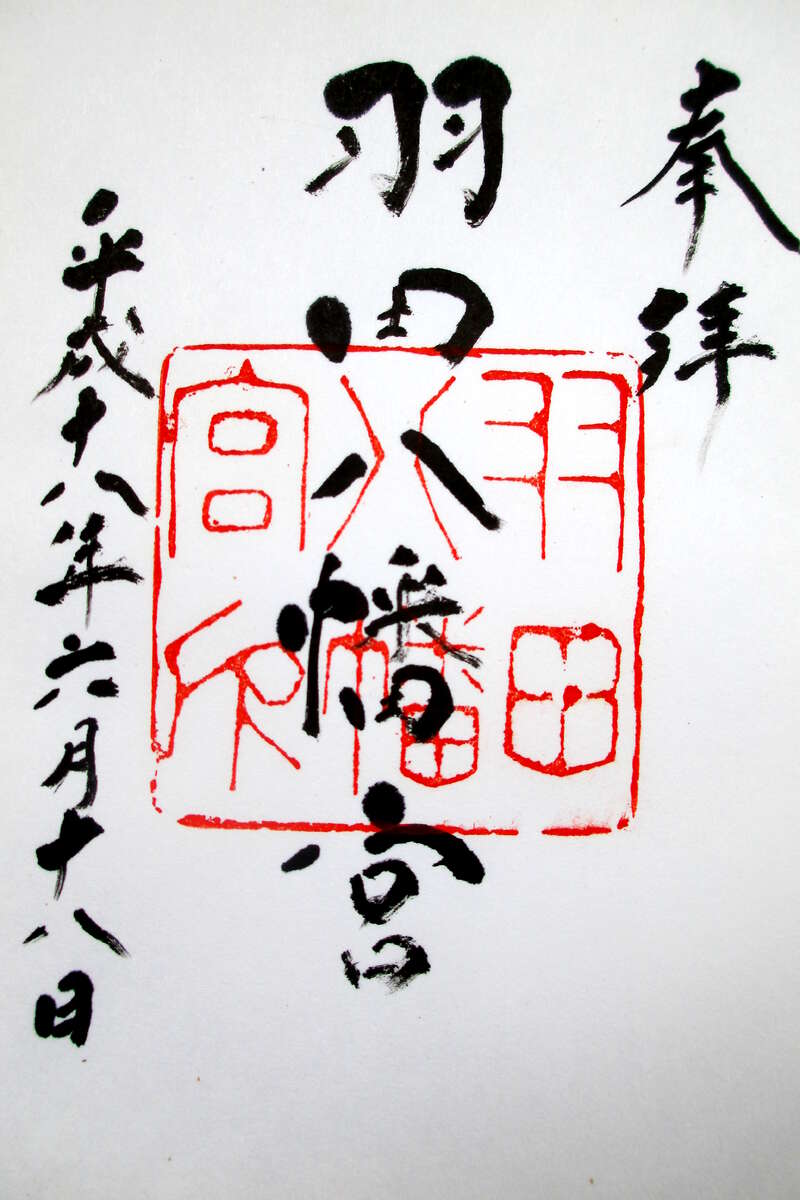 奉拝
羽田八幡宮
羽田
八幡
宮印
平成十八年六月十八日